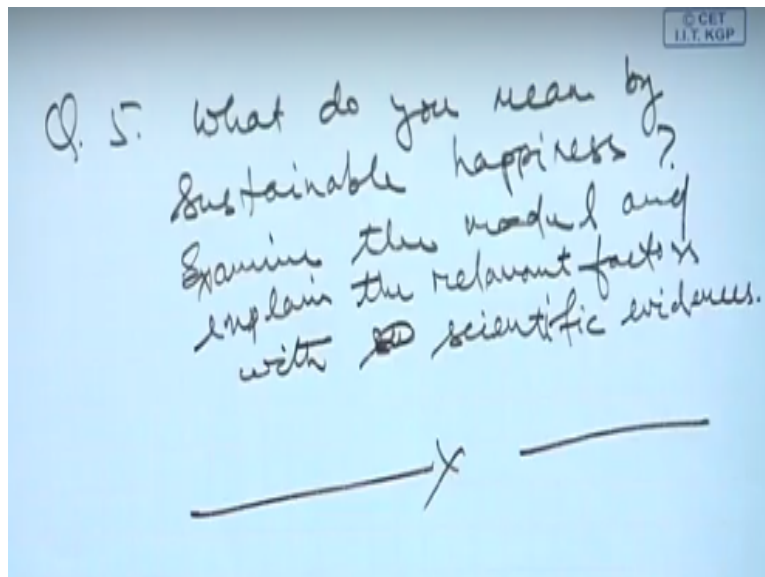 © CET
I.I.T. KGP
Q. 5. What do you mean by
Sustainable happiness?
Examine the model and
explain the relavant factors
with scientific evidences.
X